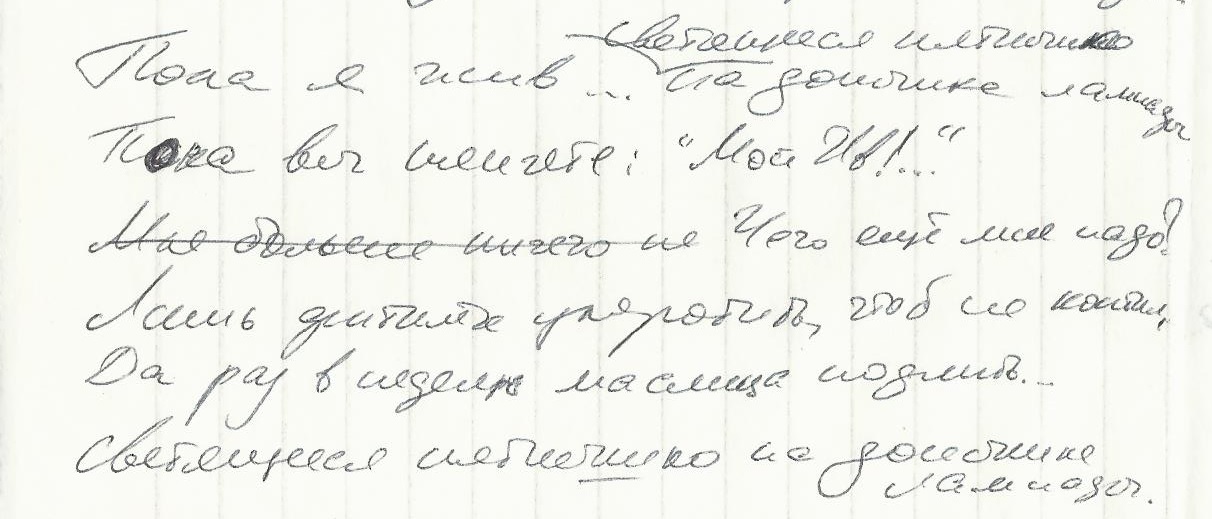 светящееся пятнышко
Пока я жив... На донышке лампады
Пока вы шепчете: "Мой Ив!..."
Мне больше ничего не Чего ещё мне надо?
Лишь фитилёк укоротить, чтоб не коптил,
Да раз в неделю маслица подлить...
Светящееся пятнышко на донышке
лампады.